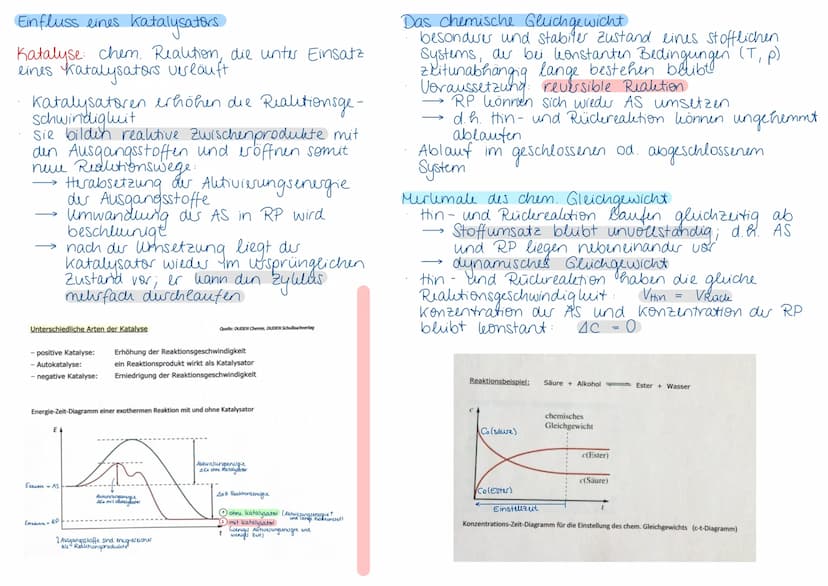 Einfluss eines Katalysators
Katalyse: chem. Reaktion, die unter Einsatz
eines Katalysators verläuft
· Katalysatoren erhöhen die Reaktionsge-
schwindigkeit
· sie bilden reaktive Zwischenprodukte mit
den Ausgangsstoffen und eröffnen somit
neue Reaktionswege:
→ Herabsetzung der Aktivierungsenergie
der Ausgangsstoffe
→ Umwandlung der AS in RP wird
beschleunigt
→ nach der Umsetzung liegt der
Katalysator wieder im ursprünglichen
Zustand vor; er kann den Zyklus
mehrfach durchlaufen
Unterschiedliche Arten der Katalyse
Quelle: DUDEN Chemie, DUDEN Schulbuchverlag
– positive Katalyse: Erhöhung der Reaktionsgeschwindigkeit
– Autokatalyse: ein Reaktionsprodukt wirkt als Katalysator
– negative Katalyse: Erniedrigung der Reaktionsgeschwindigkeit
Energie-Zeit-Diagramm einer exothermen Reaktion mit und ohne Katalysator
E
Aktivierungsenergie
ohne Katalysator
Aktivierungsenergie
mit Katalysator
Reaktionsenergie
ohne Katalysator
mit Katalysator
weniger Aktivierungsenergie und
weniger Zeit
t
Ausgangsstoffe sind energiereicher
als Reaktionsprodukte
Das chemische Gleichgewicht
· besonderer und stabiler Zustand eines stofflichen
Systems, der bei konstanten Bedingungen (T, p)
zeitunabhängig lange bestehen bleibt
· Voraussetzung: reversible Reaktion
→ RP können sich wieder AS umsetzen
→ d.h. Hin- und Rückreaktion können ungehemmt
ablaufen
· Ablauf im geschlossenen od. abgeschlossenem
System
Merkmale des chem. Gleichgewicht
· Hin- und Rückreaktion laufen gleichzeitig ab
→ Stoffumsatz bleibt unvollständig; d.h. AS
und RP liegen nebeneinander vor
→ dynamisches Gleichgewicht
· Hin- und Rückreaktion haben die gleiche
Reaktionsgeschwindigkeit: VHin = VRück
· Konzentration der AS und Konzentration der RP
bleibt konstant: ΔC = 0
Reaktionsbeispiel: Säure + Alkohol ⇌ Ester + Wasser
c
chemisches
Gleichgewicht
C0(Säure)
c(Ester)
c(Säure)
C0(Ester)
Einstellzeit
t
Konzentrations-Zeit-Diagramm für die Einstellung des chem. Gleichgewichts (c-t-Diagramm)